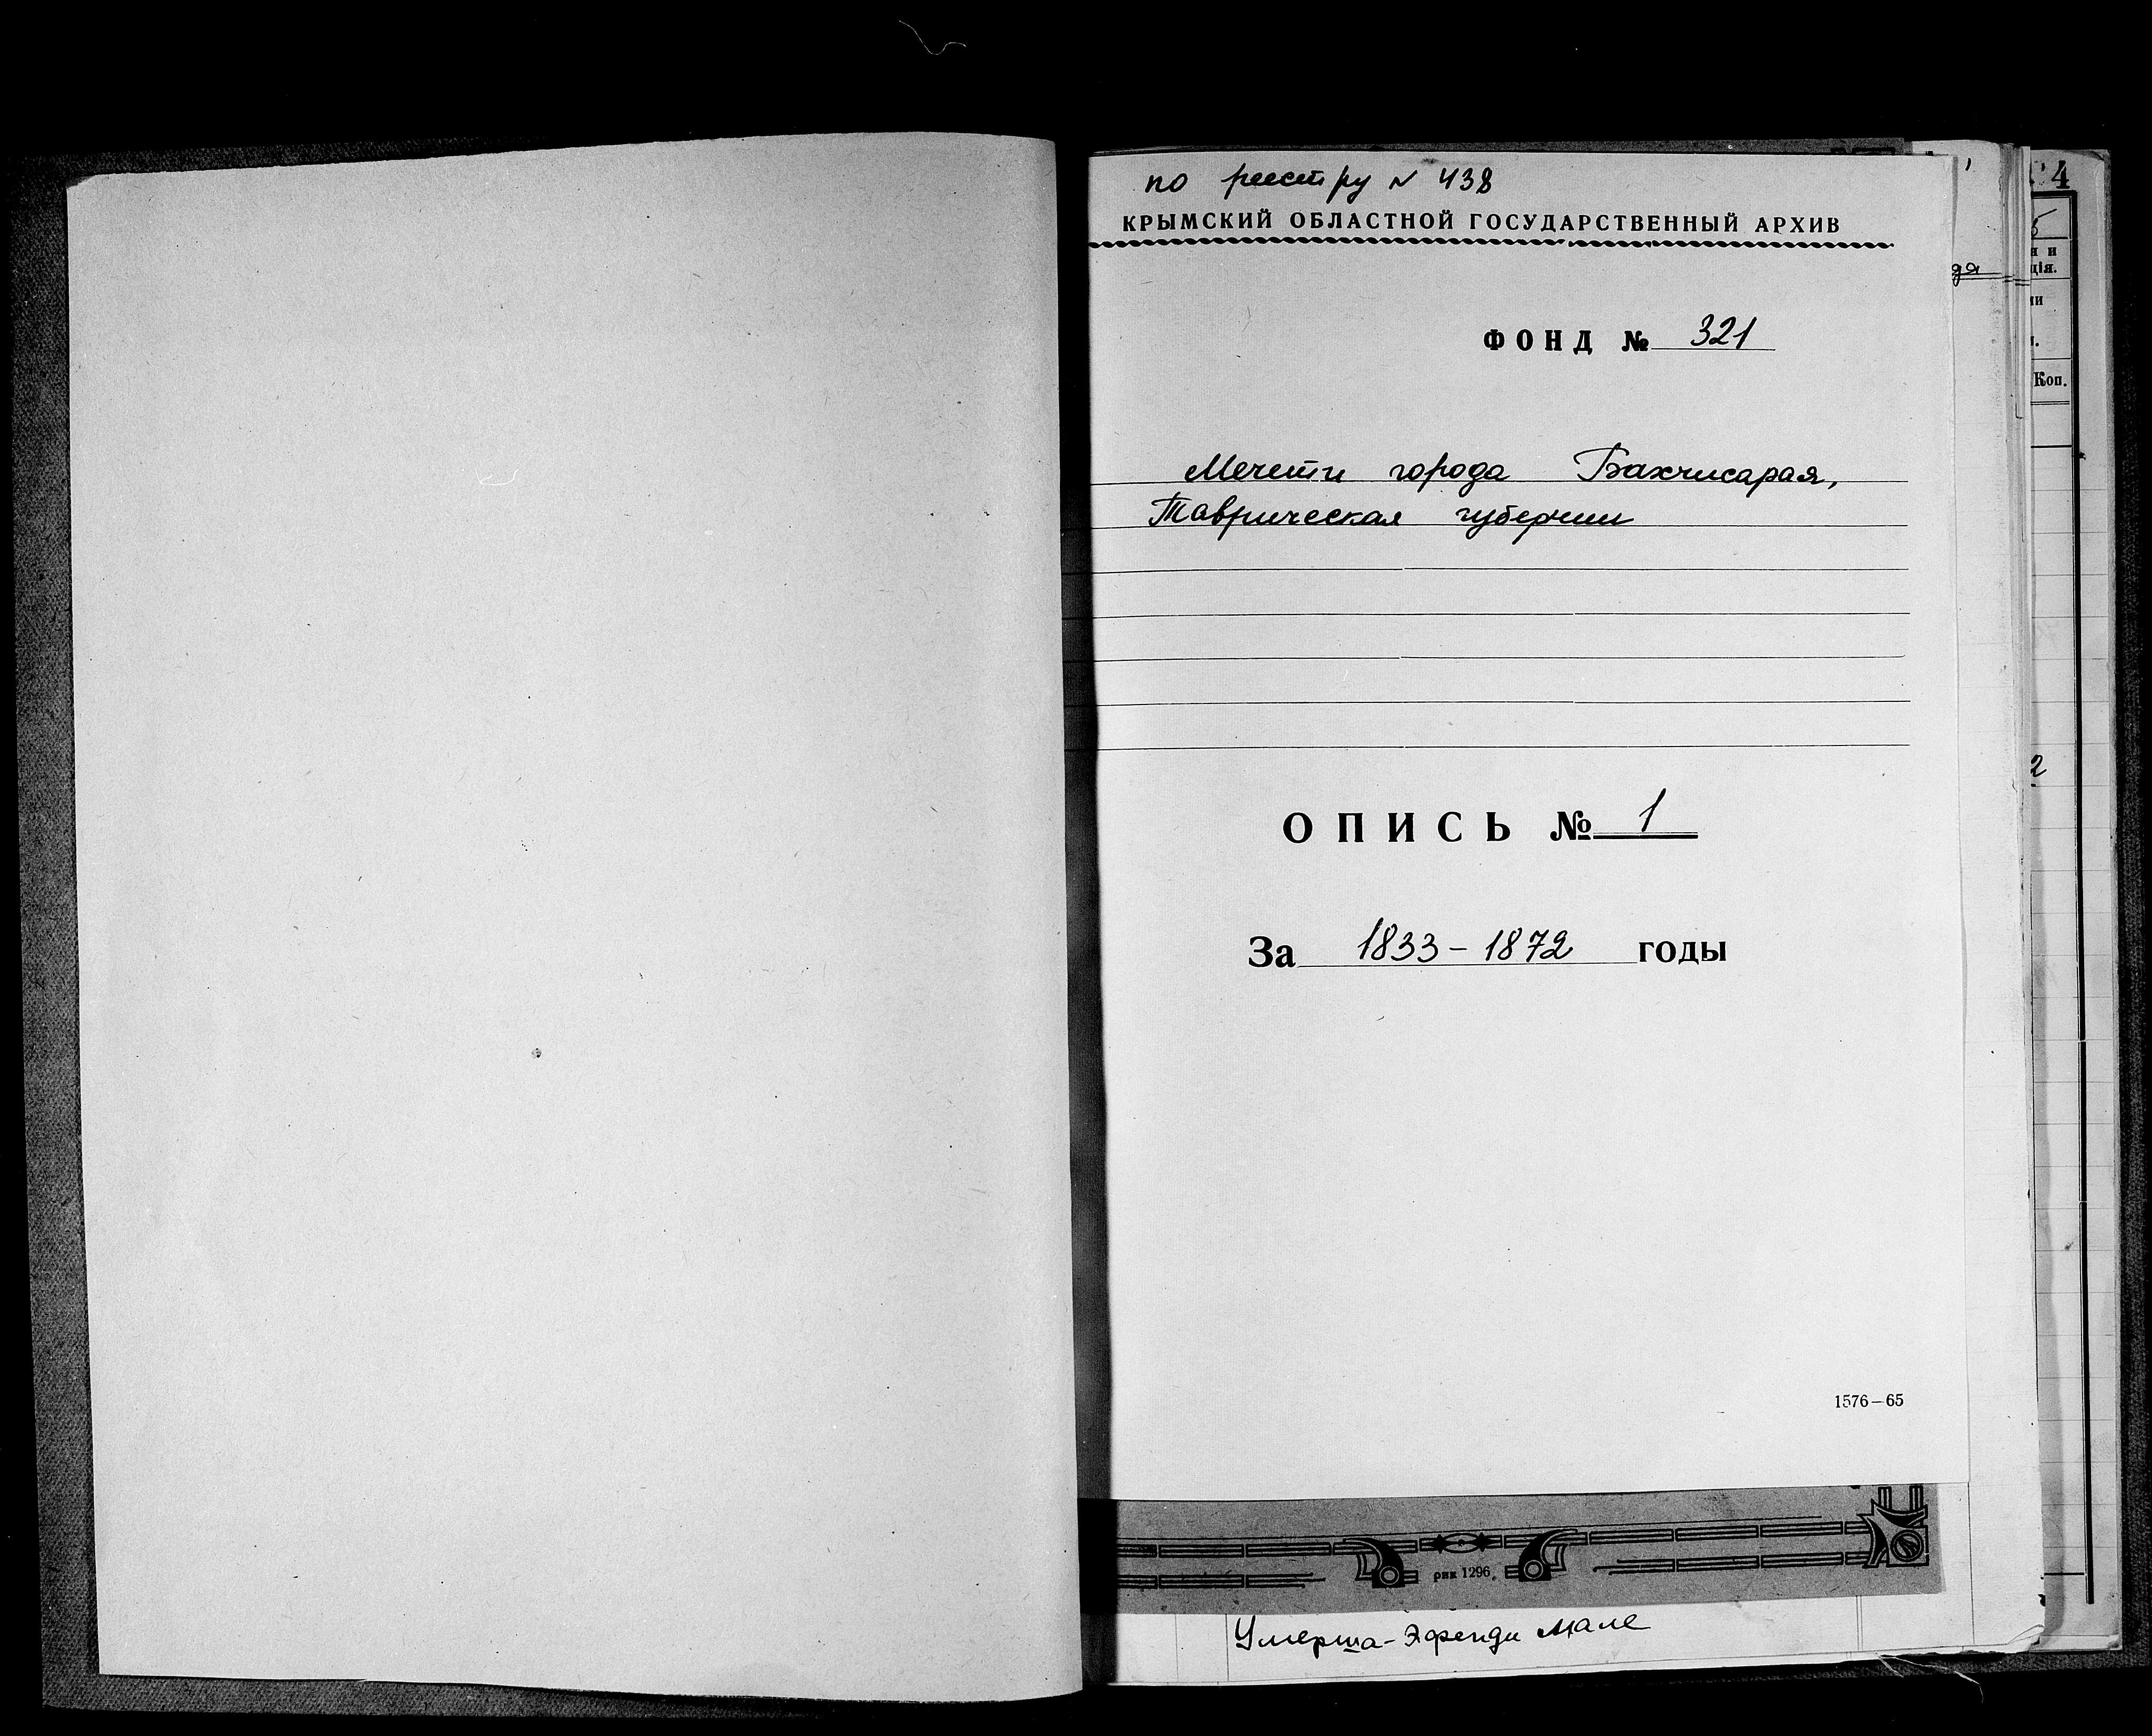 по реестру N 438
КРЫМСКИЙ ОБЛАСТНОЙ ГОСУДАРСТВЕННЫЙ АРХИВ
ФОНД № 321
Мечети города Бахчисарая,
Таврическая губернии
ОПИСЬ № 1
За 1833 – 1872 годы
1576–65
рик 1296
Умерша-Эфенди мале
4
ція.
Коп.
2